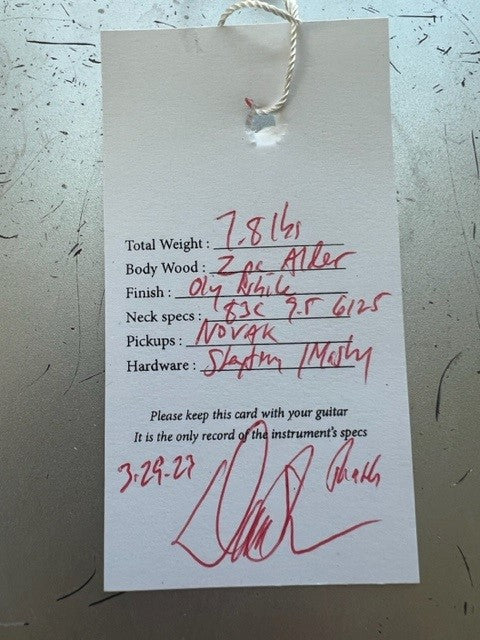 Total Weight : 7.8 lbs
Body Wood : 2 pc Alder
Finish : Oly White
Neck specs : '83C 9.5 6125
Pickups : NOVAK
Hardware : / Mastery
Please keep this card with your guitar
It is the only record of the instrument's specs
3-29-23